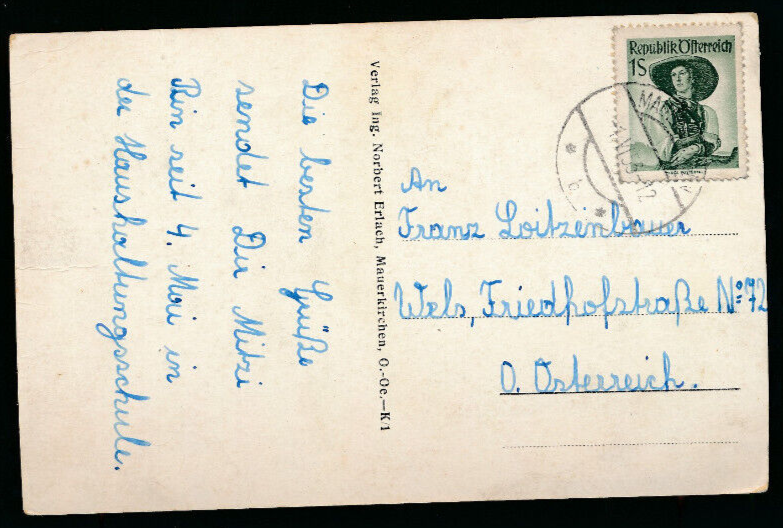 Die besten Grüße
sendet Dir Mitzi
Bin seit 4. Mai in
der Haushaltungsschule.
Verlag Ing. Norbert Erlach, Mauerkirchen, O.-Oe.—K/1
Republik Österreich
1S
An
Franz Loitzenbauer
Wels, Friedhofstraße No 72
O. Österreich.